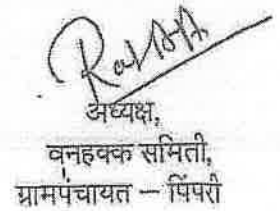 अध्यक्ष,
वनहक्क समिती,
ग्रामपंचायत – पिंपरी